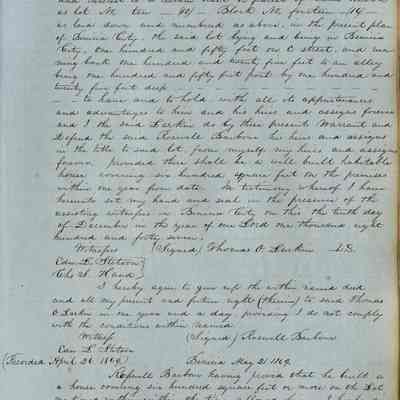 as Lot No. ten — 10 — Block No. fourteen — 14 —
as laid down and numbered as above, in the present plan
of Benicia City, the said lot lying and being in Benicia
City, one hundred and fifty feet on C street, and run
ning back one hundred and twenty five feet to an alley
being one hundred and fifty feet front by one hundred and
twenty five feet deep
to have and to hold with all its appurtenances
and advantages to him and his heirs and assigns forever
and I the said Larkin do by these present Warrant and
Defend the said Roswell Barbour his heirs and assigns
in the title to said lot, from myself, my heirs and assigns
forever, provided there shall be a well built habitable
house covering six hundred square feet on the premises
within one year from date. In testimony whereof I have
hereunto set my hand and seal in the presence of the
assisting witnesses in Benicia City on this the tenth day
of December in the year of our Lord one thousand eight
hundred and forty seven.
Witnesses (Signed) Thomas O Larkin L.S.
Edw. L. Stetson
Chs S. Hand
I hereby agree to give up the within named deed
and all my present and future right (therein) to said Thomas
O Larkin in one year and a day, providing I do not comply
with the conditions within named
Witness (Signed) Roswell Barbour
Edw. L. Stetson
(Recorded April 26. 1849. Benicia May 21 1849.
Roswell Barbour having proved that he build a
a house covering six hundred square feet or more on the Lot